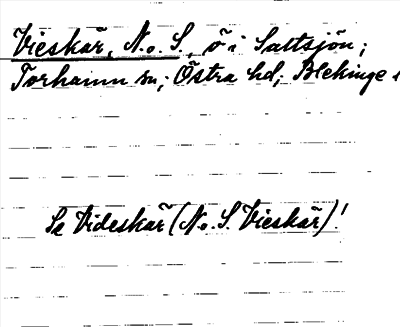 Vieskär, N. o. S., ö i Saltsjön;
Torhamn sn; Östra hd; Blekinge
Se Videskär (N. o. S. Vieskär)!